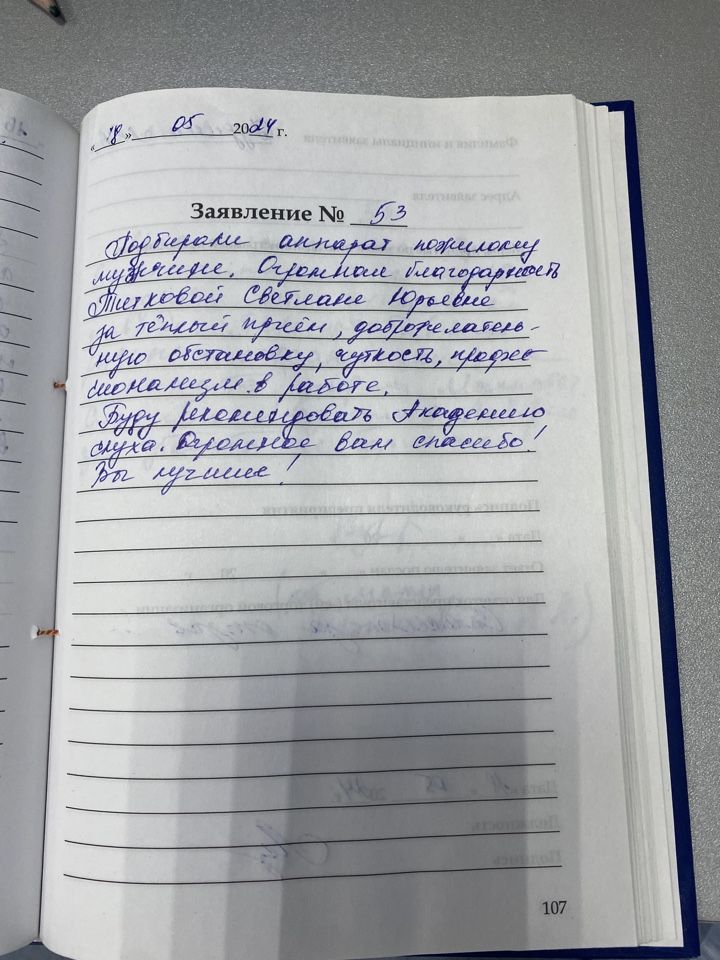 «18» 05 2024 г.
Заявление № 53
Подбирали аппарат пожилому
мужчине. Огромная благодарность
Титковой Светлане Юрьевне
за тёплый приём, доброжелатель-
ную обстановку, чуткость, профес
сионализм в работе.
Буду рекомендовать Академию
слуха. Огромное вам спасибо!
Вы лучшие!
107